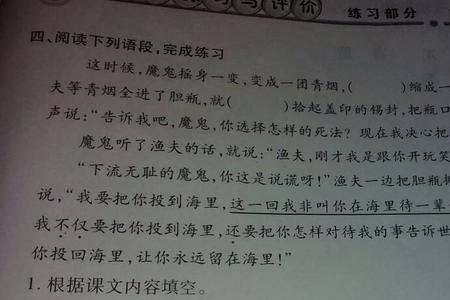 与评价
练习部分
四、阅读下列语段,完成练习
这时候,魔鬼摇身一变,变成一团青烟,( )缩成一
夫等青烟全进了胆瓶,就( )拾起盖印的锡封,把瓶口
声说:“告诉我吧,魔鬼,你选择怎样的死法?现在我决心把
魔鬼听了渔夫的话,就说:“渔夫,刚才我是跟你开玩笑
“下流无耻的魔鬼,你这是说谎呀!”渔夫一边把胆瓶
说,“我要把你投到海里,这一回我非叫你在海里待一辈
我不仅要把你投到海里,还要把你怎样对待我的事告诉世
你投回海里,让你永远留在海里!”
1.根据课文内容填空。